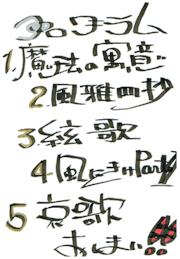 プログラム
1.魔法の寓意
2.風雅四抄
3.絃歌
4.風にきけPart
5哀歌
おまい!!